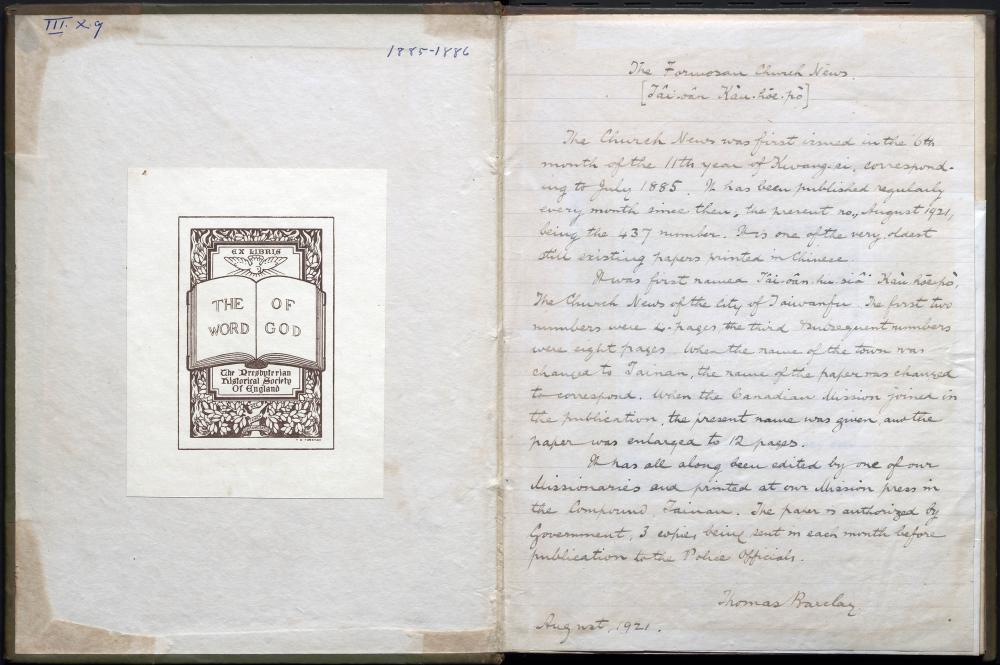 III. x. 9
1885-1886
EX LIBRIS
THE WORD
OF GOD
The Presbyterian
Historical Society
Of England
The Formosan Church News.
[Tâi-oân Kàu-hōe-pò]
The Church News was first issued in the 6th
month of the 11th year of Kwang-si, correspond-
ing to July 1885. It has been published regularly
every month since then, the present no., August 1921,
being the 437 number. It is one of the very oldest
still existing papers printed in Chinese.
It was first named Tâi-oân-hú-siâⁿ Kàu-hōe-pò,
The Church News of the city of Taiwanfu. The first two
numbers were 4 pages, the third & subsequent numbers
were eight pages. When the name of the town was
changed to Tainan, the name of the paper was changed
to correspond. When the Canadian Mission joined in
the publication, the present name was given, and the
paper was enlarged to 12 pages.
It has all along been edited by one of our
Missionaries and printed at our Mission press in
the Compound, Tainan. The paper is authorized by
Government, 3 copies being sent in each month before
publication to the Police Officials.
Thomas Barclay
August, 1921.